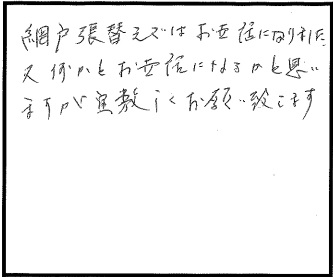 網戸張替えではお世話になりました
又何かとお世話になるかと思い
ますが宜敷くお願い致します